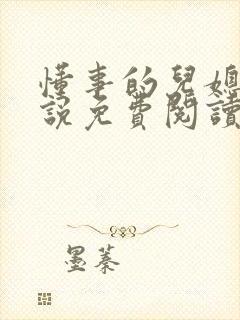 懂事的兒媳
說免費閱讀
墨蓁